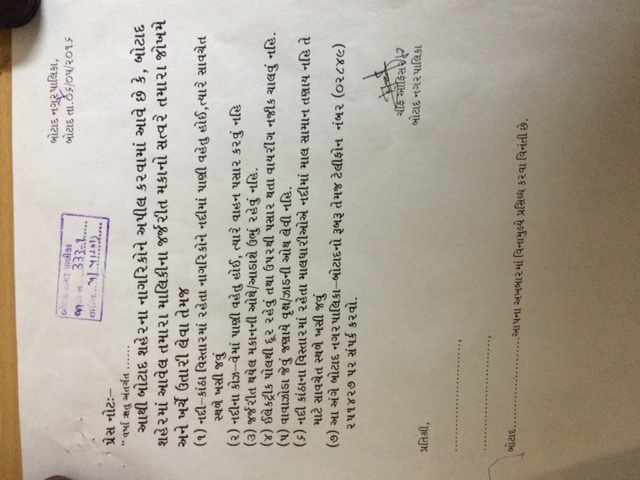 બોટાદ નગરપાલિકા,
બોટાદ તા.૦૬/૦૫/૨૦૧૬
બોટાદ નગર પાલીકા
જાવક નં. 333
તારીખ
પ્રેસ નોટ:–
"વર્ષા ઋતુ અંતર્ગત ......
આથી બોટાદ શહેરના નાગરિકોને અપીલ કરવામાં આવે છે કે, બોટાદ
શહેરમાં આવેલ તમારા માલિકીના જર્જરીત મકાનો સત્વરે તમારા જોખમે
અને ખર્ચે ઉતારી લેવા તેમજ
(૧) નદી–કાંઠા વિસ્તારમાં રહેતા નાગરિકોને નદીમાં પાણી વહેતુ હોઈ,ત્યારે સાવચેત
સ્થળે ખસી જવું
(૨) નદીના કોઝ–વેમાં પાણી વહેતુ હોઈ, ત્યારે વાહન પસાર કરવું નહિ
(૩) જર્જરીત થયેલ મકાનની ઓથે/આડાશે ઉભું રહેવું નહિ.
(૪) ઈલેકટ્રીક પોલથી દૂર રહેવું તથા ઉપરથી પસાર થતા વાયરીંગ નજીક ચાલવું નહિ.
(૫) વાવાઝોડા જેવું જણાયે વૃક્ષ/ઝાડની ઓથ લેવી નહિ.
(૬) નદી કાંઠાના વિસ્તારમાં રહેતા માલધારીઓએ નદીમાં માલ સામાન તણાય નહિ તે
માટે સાવચેત સ્થળે ખસી જવું
(૭) આ અંગે બોટાદ નગરપાલિકા–બોટાદનો રૂબરૂ તેમજ ટેલીફોન નંબર (૦૨૮૪૯)
૨૫૧૪૨૭ પર સંપર્ક કરવો.
ચીફ ઓફિસર
બોટાદ નગરપાલિકા
પ્રતિશ્રી,
........................,
........................,
બોટાદ........................આપના અખબારમાં વિનામુલ્યે પ્રસિધ્ધ કરવા વિનંતી છે.